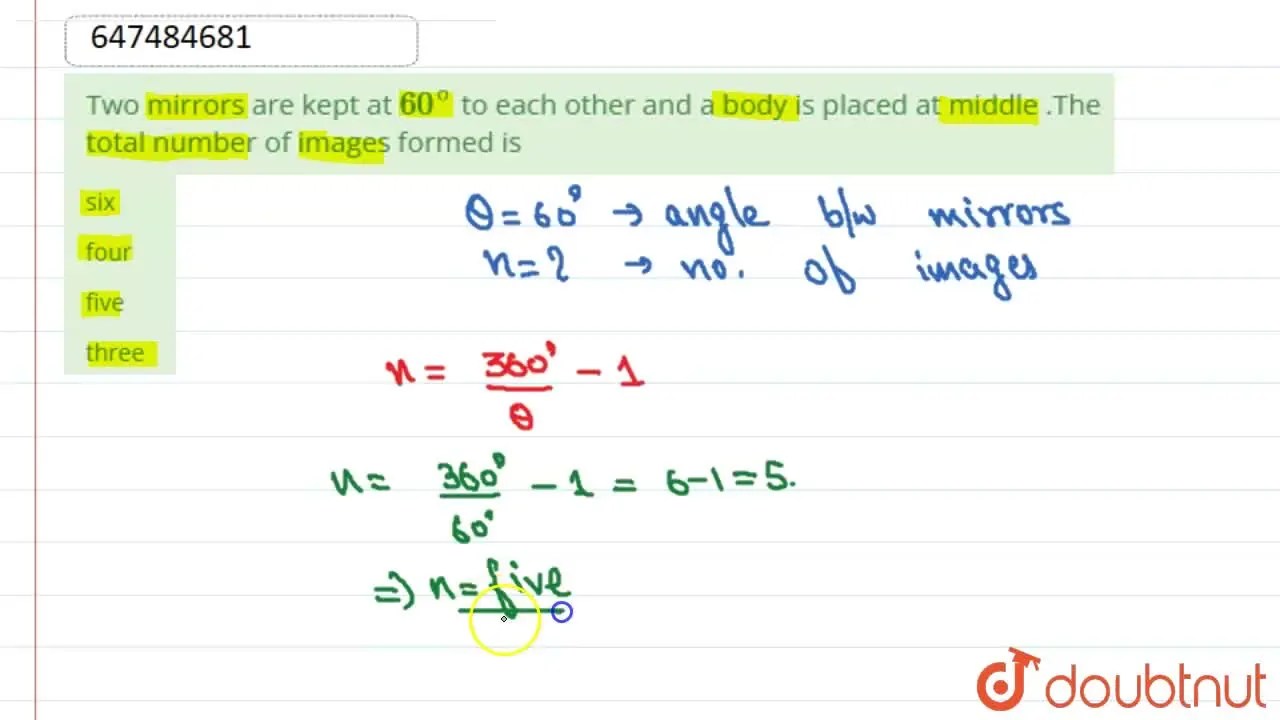 647484681
Two mirrors are kept at 60° to each other and a body is placed at middle .The
total number of images formed is
six
four
five
three
θ = 60° → angle b/w mirrors
n = ? → no. of images
n = 360°/θ - 1
n = 360°/60° - 1 = 6-1 = 5.
⇒ n = five
doubtnut